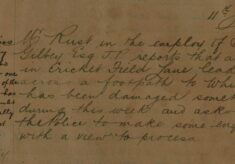 11th
Mr Rust in the employ of
Gilbey Esq J.P. reports that a
in Cricket Field Lane lead
one
across a footpath to
of the
has been damaged some
during this week and asks
the Police to make some enq
with a view to process